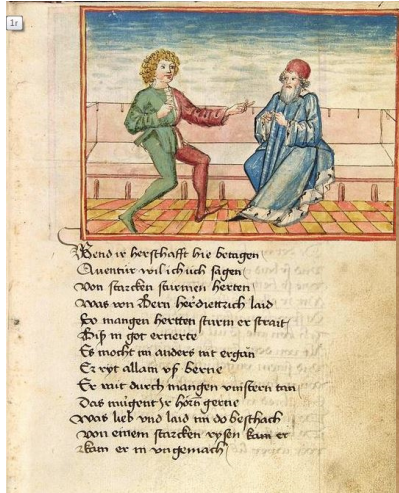 1r
Wend ir herschafft hie betagen
Auentür wil ich uch sagen
Von starcken sturmen herten
Was von Bern her diettrich laid
So mangen hertten sturm er strait
Biß in got ernerte
Es mocht im anders nit ergan
Er ryt allain vß berne
Er rait durch mangen vinstern tan
Das mugent ir hörn gerne
Was lieb vnd laid im do beschach
Von einem starcken rysen kam er
kam er in vngemach